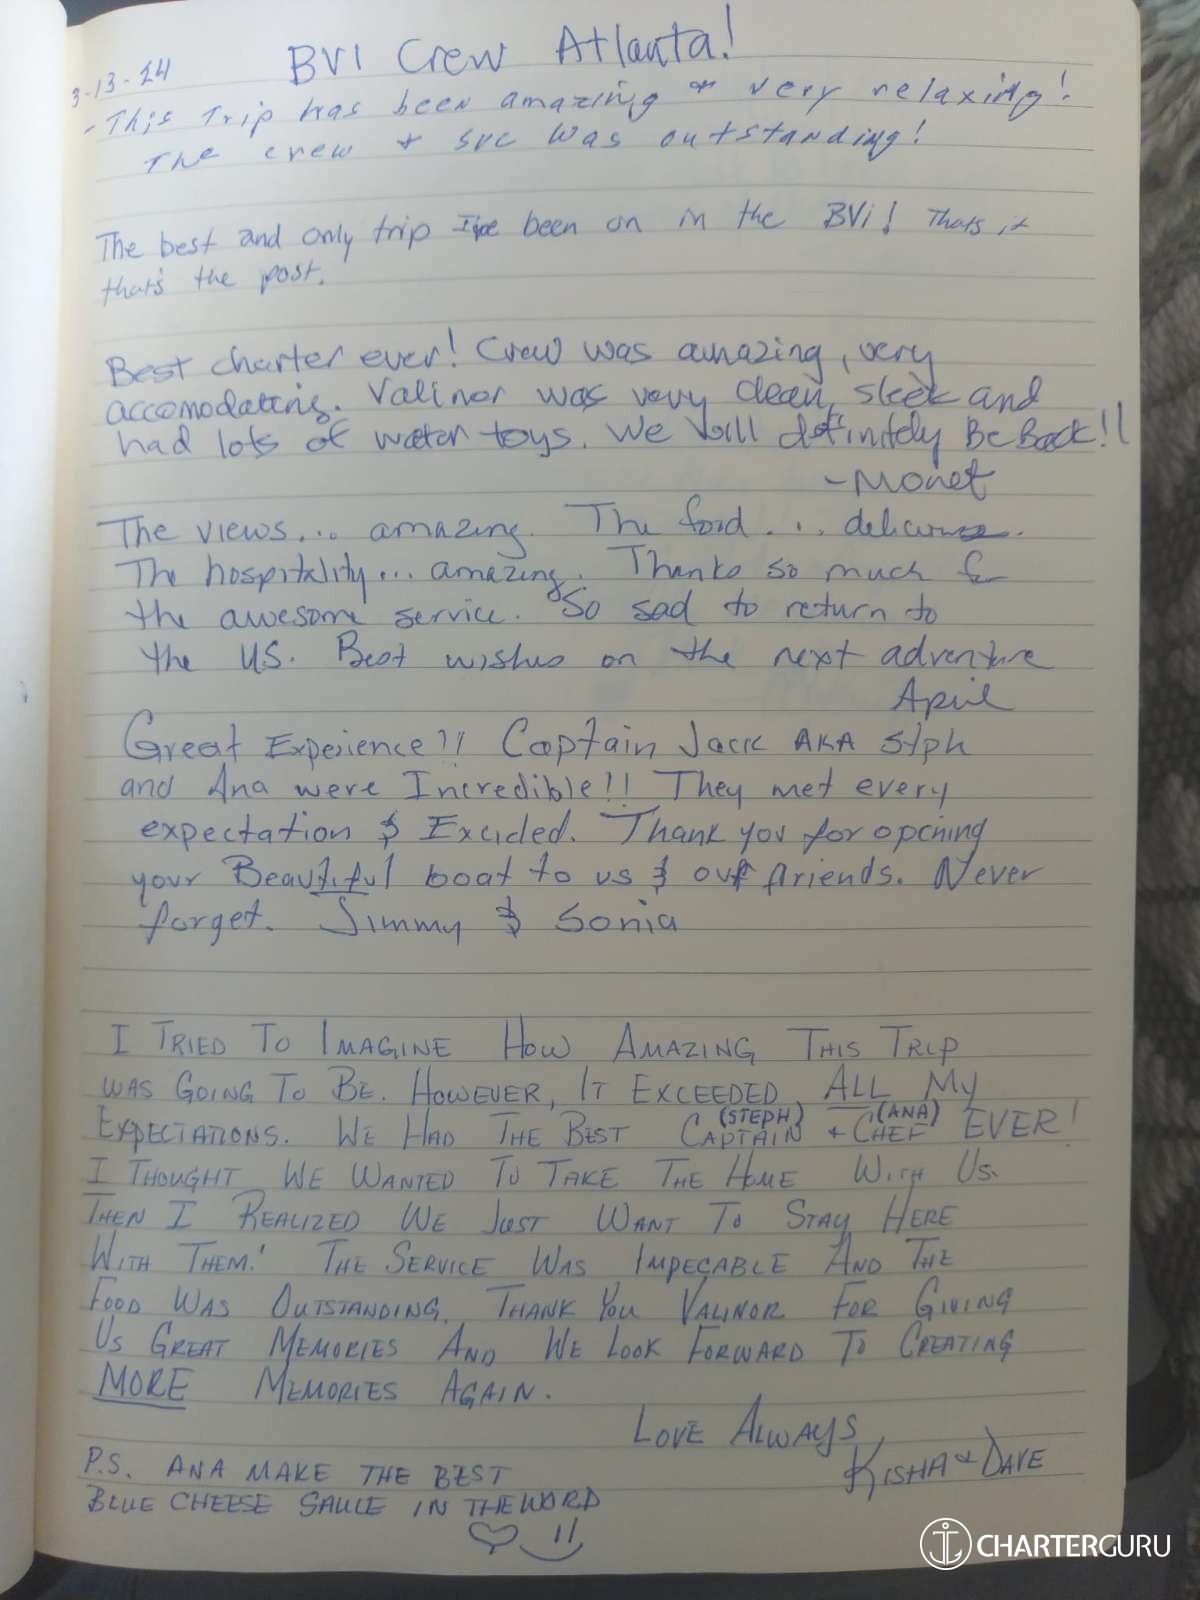 BVI Crew Atlanta!
3-13-24
- This Trip has been amazing + very relaxing!
The crew + svc was outstanding!
The best and only trip I've been on in the BVI! Thats it
that's the post.
Best charter ever! Crew was amazing, very
accomodating. Valinor was very clean, sleek and
had lots of water toys. We will definitely Be Back!!
- Monet
The views... amazing. The food... delicious.
The hospitality... amazing. Thanks so much for
the awesome service. So sad to return to
the US. Best wishes on the next adventure
April
Great Experience!! Captain Jack AKA Stph
and Ana were Incredible!! They met every
expectation & Excided. Thank you for opening
your Beautiful boat to us & our friends. Never
forget. Jimmy & Sonia
I TRIED TO IMAGINE HOW AMAZING THIS TRIP
WAS GOING TO BE. HOWEVER, IT EXCEEDED ALL MY
(STEPH) (ANA)
EXPECTATIONS. WE HAD THE BEST CAPTAIN + CHEF EVER!
I THOUGHT WE WANTED TO TAKE THE HOME WITH US.
THEN I REALIZED WE JUST WANT TO STAY HERE
WITH THEM! THE SERVICE WAS IMPECABLE AND THE
FOOD WAS OUTSTANDING. THANK YOU VALINOR FOR GIVING
US GREAT MEMORIES AND WE LOOK FORWARD TO CREATING
MORE MEMORIES AGAIN.
LOVE ALWAYS
KISHA + DAVE
P.S. ANA MAKE THE BEST
BLUE CHEESE SAUCE IN THE WORD
CHARTERGURU